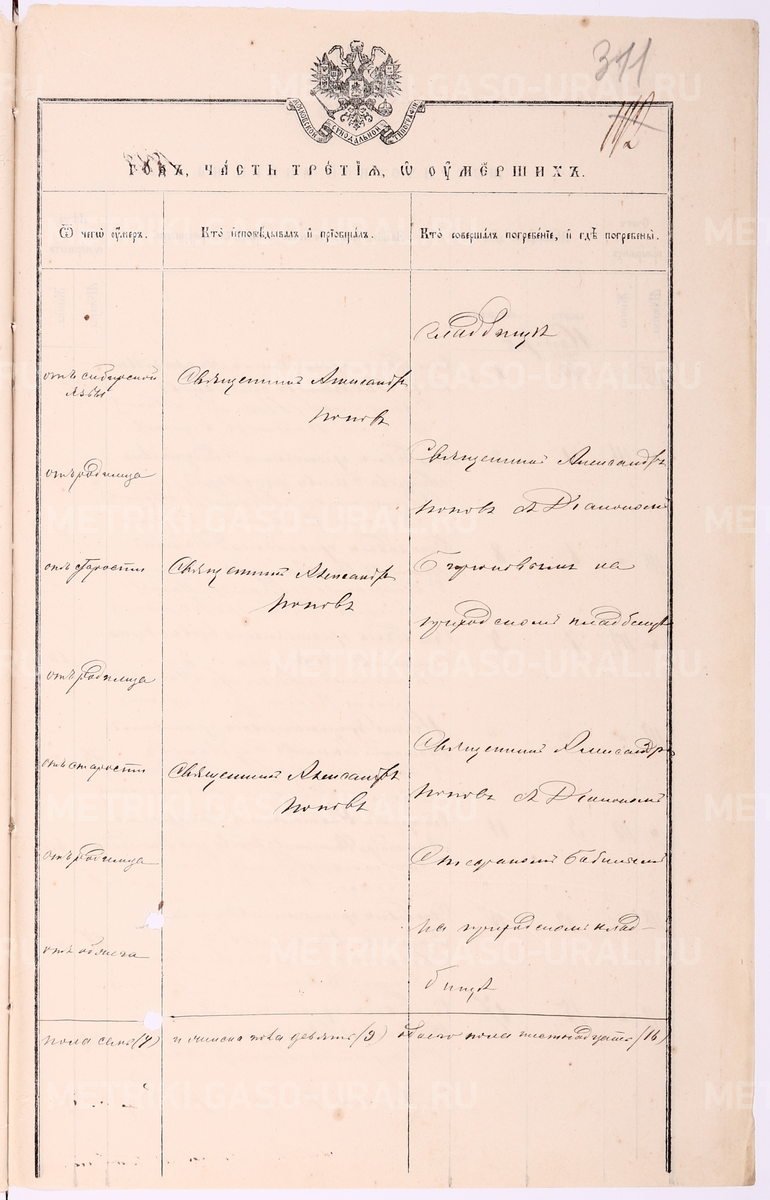 311
112
МОСКОВСКОЙ СѴНОДАЛЬНОЙ ТИПОГРАФІИ
годъ, часть третїѧ, ѡ оумершихъ.
Ѿ чегѡ оумеръ.
Кто исповѣдывалъ и прїобщалъ.
Кто совершалъ погребенїе, и гдѣ погребены.
кладбищѣ
отъ сибирской
язвы
Священникъ Александръ
Поповъ
отъ родимца
Священникъ Александръ
Поповъ съ Діакономъ
отъ старости
Священникъ Александръ
Поповъ
на
приходскомъ кладбищѣ
отъ родимца
Священникъ Александръ
Поповъ съ Діакономъ
отъ старости
Священникъ Александръ
Поповъ
отъ родимца
Стефаномъ Бабинымъ
на приходскомъ клад-
бищѣ
отъ
пола семь (7) и женска пола девять (9) обоего пола шестнадцать (16)
METRIKI.GASO-URAL.RU